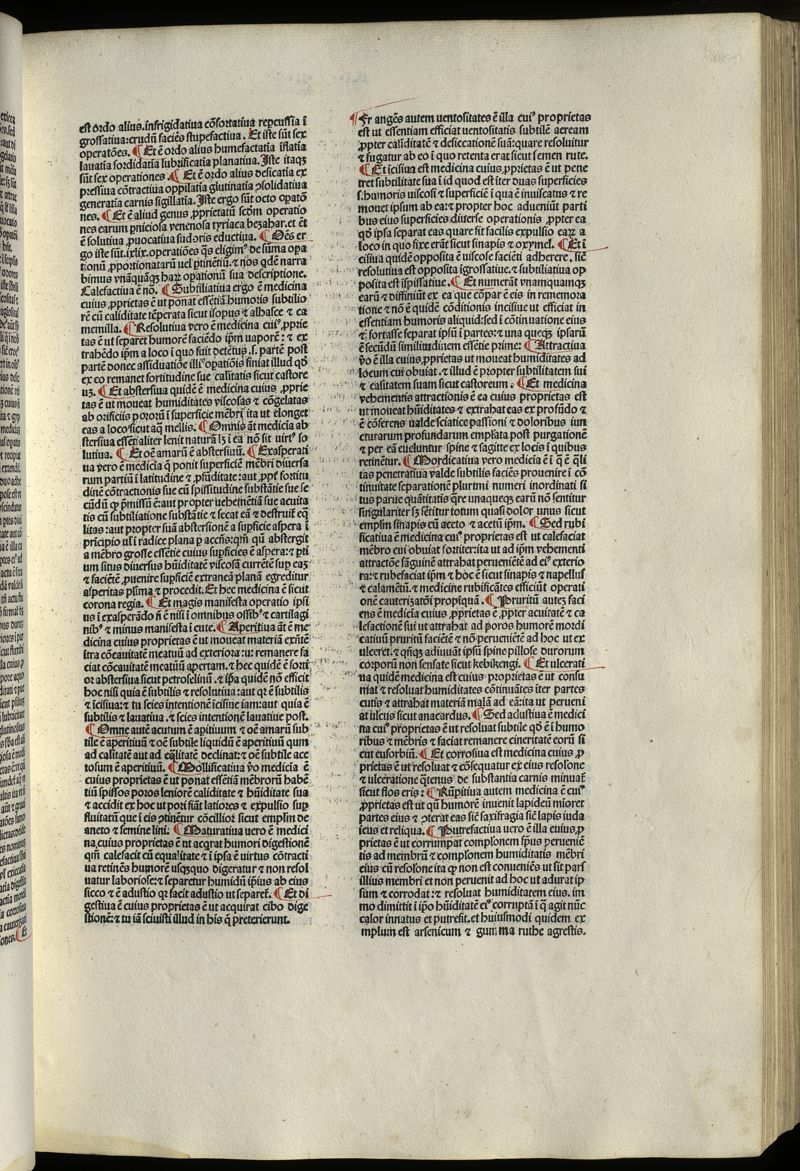 est ordo alius.infrigidatiua cōfortatiua repcussia ī
grossatiua:crudū faciēs stupefactiua. Et iste sūt sex
operatōes. ¶ Et ē ordo alius humefactatia īflatia
lauatia sordidatia lubrificatia planatiua. Iste itaqꝫ
sūt sex operationes. ¶ Et ē ordo alius desicatia ex
pressiua cōtractiua oppilatia glutinatia ꝯsolidatiua
generatia carnis sigillatia. Iste ergo sūt octo opatō
nes. ¶ Et ē aliud genus ꝓprietatū scḋm operatio
nes earum pniciosa venenosa tyriaca bezahar. et ēt
ē solutiua ꝓuocatiua sudoris eductiua. ¶ Oēs er
go iste sūt.ixlix.operatiōes q̄s eligimꝰ de sūma opa
tionū ꝓportionatarū uel ptinētiū.⁊ nos qdē narra
bimus vnāquāqꝫ haꝝ opationū sua descriptione.
Calefactiua ē nō. ¶ Subtiliatiua ergo ē medicina
cuius ꝓprietas ē ut ponat essētiā humoris subtilio
rē cū caliditate tēperata sicut isopus ⁊ alhasce ⁊ ca
memilla. ¶ Resolutiua vero ē medicina cuiꝰ ꝓprie
tas ē ut separet humorē faciēdo ipm̄ uaporē: ⁊ ex
trahēdo ipm̄ a loco ī quo fuit detētus .s. partē post
partē donec assiduatiōe illiꝰ opatiōis finiat illud qḋ
ex eo remanet fortitudine sue calitatis sicut castore
uꝫ. ¶ Et abstersiua quidē ē medicina cuius ꝓprie
tas ē ut moueat humiditates viscosas ⁊ cōgelatas
ab orificiis pororū ī superficie mēbri ita ut elonget
eas a loco sicut aq̄ mellis. ¶ Omnis āt medicīa ab
stersiua essētialiter lenit naturā lꝫ ī ea nō sit uirtꝰ so
lutiua. ¶ Et oē amarū ē abstersiuū. ¶ Exasperati
ua vero ē medicīa q̄ ponit superficiē mēbri diuersa
rum partiū ī latitudine ⁊ ꝓfūditate:aut ꝓpt̄ fortitu
dinē cōtractionis sue cū spissitudine substātie sue se
cūdū qḋ p̄missū ē:aut propter uehemētiā sue acuita
tis cū subtiliatione substātie ⁊ secat eā ⁊ destruit eq̄
litas:aut propter suā abstersionē a supficie aspera ī
prīcipio ul̓ ī radice plana p accn̄s:qm̄ qn̄ abstergit
a mēbro grosse essētie cuius supficies ē aspera:⁊ pti
um situs diuersus hūiditatē viscosā currētē sup eaꝫ
⁊ faciētē ꝓuenire supficiē extraneā planā egreditur
asperitas prīma ⁊ procedit. Et hec medicīa ē sicut
corona regia. ¶ Et magis manifesta operatio ipsi
us ī exasperādo n̄ ē nisi ī omnibus ossibꝰ ⁊ cartilagi
nibꝰ ⁊ minus manifesta ī cute. ¶ Aperitiua āt ē me
dicina cuius proprietas ē ut moueat materiā exn̄tē
ītra cōcauitatē meatuū ad exteriora:ut remanere fa
ciat cōcauitatē meatuū apertam.⁊ hec quidē ē forti
or abstersiua sicut petroselinū. ⁊ ip̄a quidē nō efficit
hoc nisi quia ē subtilis ⁊ resolutiua:aut qꝛ ē subtilis
⁊ īcisiua:⁊ tu scies intentionē īcisiue iam:aut quia ē
subtilis ⁊ lauatiua .⁊ scies intentionē lauatiue post.
¶ Omne autē acutum ē apitiuum ⁊ oē amarū sub
tile ē aperitiuū ⁊ oē subtile liquidū ē aperitiuū qum
ad calitatē aut ad eq̄litatē declinat:⁊ oē subtile ace
tosum ē aperitiuū. ¶ Mollificatiua v̓o ē medicīa ē
cuius proprietas ē ut ponat essētiā mēbrorū habē
tiū spissos poros leniorē caliditate ⁊ hūiditate sua
⁊ accidit ex hoc ut pori fiāt latiores ⁊ expulsio sup
fluitatū que ī eis ꝯtinētur cōcillior sicut emplm̄ de
aneto ⁊ semine lini: ¶ Maturatiua uero ē medici
na.cuius proprietas ē ut acq̄rat humori digestionē
qm̄ calefacit cū equalitate ⁊ ī ipsa ē uirtus cōtracti
ua retinēs humorē usqꝫquo digeratur ⁊ non resol
uatur laboriose:⁊ separetur humidū ip̄ius ab eius
sicco ⁊ ē adustio qꝛ facit adustio ut separet̄. ¶ Et di
gestiua ē cuius proprietas ē ut acquirat cibo dige
stionē:⁊ tu iā sciuisti illud in his q̄ preterierunt.
¶ Fr angēs autem uentositates ē illa cuiꝰ proprietas
est ut essentiam efficiat uentositatis subtilē aeream
ꝓpter caliditatē ⁊ desiccationē suā:quare resoluitur
⁊ fugatur ab eo ī quo retenta erat sicut semen rute.
¶ Et īcisiua est medicina cuius ꝓprietas ē ut pene
tret subtilitate sua ī id quod est īter duas superficies
.s.humoris uiscosi ⁊ superficiē ī qua ē inuiscatus ⁊ re
mouet ipsum ab ea:⁊ propter hoc adueniūt parti
bus eius superficies diuerse operationis ꝓpter ea
qḋ ip̄a separat eas quare fit facilis expulsio eaꝝ a
loco in quo fixe erāt sicut sinapis ⁊ oxymel. ¶ Et ī
cisiua quidē opposita ē uiscose faciēti adherere. sic̄
resolutiua est opposita īgrossatiue.⁊ subtiliatiua op
posita est īspissatiue. ¶ Et numerāt vnamquamqꝫ
earū ⁊ diffiniūt ex ea que cōpar ē eis in rememora
tione ⁊ nō ē quidē cōditionis incisiue ut efficiat in
essentiam humoris aliquid:sed ī cōtinuatione eius
⁊ fortasse separat ipsū ī partes:⁊ una queqꝫ ipsarū
ē secūdū similitudinem essētie prime: ¶ Attractiua
v̓o ē illa cuius ꝓprietas est ut moueat humiditates ad
locum cui obuiat.⁊ illud ē propter subtilitatem sui
⁊ calitatem suam sicut castoreum: ¶ Et medicina
vehementis attractionis ē ea cuius proprietas est
ut moueat hūiditates ⁊ extrahat eas ex profūdo ⁊
ē cōferens ualde sciatice passioni ⁊ doloribus iun
cturarum profundarum emplata post purgationē
⁊ per eā eueluntur spine ⁊ sagitte ex locis ī quibus
retinētur. ¶ Mordicatiua vero medicīa ē ī q̄ ē q̄li
tas penetratiua valde subtilis faciēs prouenire ī cō
tinuitate separationē plurimi numeri inordinati si
tus parue quātitatis qre unaqueqꝫ earū nō sentitur
singulariter sꝫ sētitur totum quasi dolor unus sicut
emplm̄ sinapis cū aceto ⁊ acetū ipm̄. ¶ Sed rubi
ficatiua ē medicina cuiꝰ proprietas est ut calefaciat
mēbrū cui obuiat fortiter:ita ut ad ipm̄ vehementi
attractōe sāguinē attrahat perueniētē ad eiꝰ exterio
ra:⁊ rubefaciat ipm̄ ⁊ hoc ē sicut sinapis ⁊ napellus
⁊ calamētū.⁊ medicine rubificātes efficiūt operati
onē cauterizatōi propīquā. ¶ Pruritū autꝫ faci
ens ē medicīa cuius ꝓprietas ē ꝓpter acuitatē ⁊ ca
lefactionē sui ut attrahat ad poros humorē mordi
catiuū pruritū faciētē ⁊ nō perueniētē ad hoc ut ex
ulceret.⁊ qn̄qꝫ adiuuāt ipsū spine pillose durorum
corporū non sensate sicut kebikengi. ¶ Et ulcerati
ua quidē medicina est cuius proprietas ē ut consu
mat ⁊ resoluat humiditates cōtinuātes īter partes
cutis ⁊ attrahat materiā malā ad eā:ita ut perueni
at ulcus sicut anacardus. ¶ Sed adustiua ē medici
na cuiꝰ proprietas ē ut resoluat subtile qḋ ē ī humo
ribus ⁊ mēbris ⁊ faciat remanere cineritatē eorū si
cut euforbiū. ¶ Et corrosiua est medicina cuius ꝓ
prietas ē ut resoluat ⁊ cōsequatur ex eius resolōne
⁊ ulceratione q̄tenus de substantia carnis minuat̄
sicut flos eris: ¶ Rūpitiua autem medicina ē cuiꝰ
ꝓprietas est ut qn̄ humorē inuenit lapideū mioret
partes eius ⁊ ꝯterat eas sic̄ saxifragia sic̄ lapis iuda
icus et reliqua. ¶ Putrefactiua uero ē illa cuius ꝓ
prietas ē ut corrumpat complōnem sp̄us perueniē
tis ad membrū ⁊ complōnem humiditatis mēbri
eius cū resolōne ita qꝫ non est conueniēs ut sit pars
illius membri et non perueniat ad hoc ut adurat ip
sum ⁊ corrodat:⁊ resoluat humiditatem eius. im
mo dimittit ī ip̄o hūiditatē eiꝰ corruptā ī q̄ agit nūc
calor innatus et putrefit.et huiusmodi quidem ex
mplum est arsenicum ⁊ gumma ruthe agrestis.